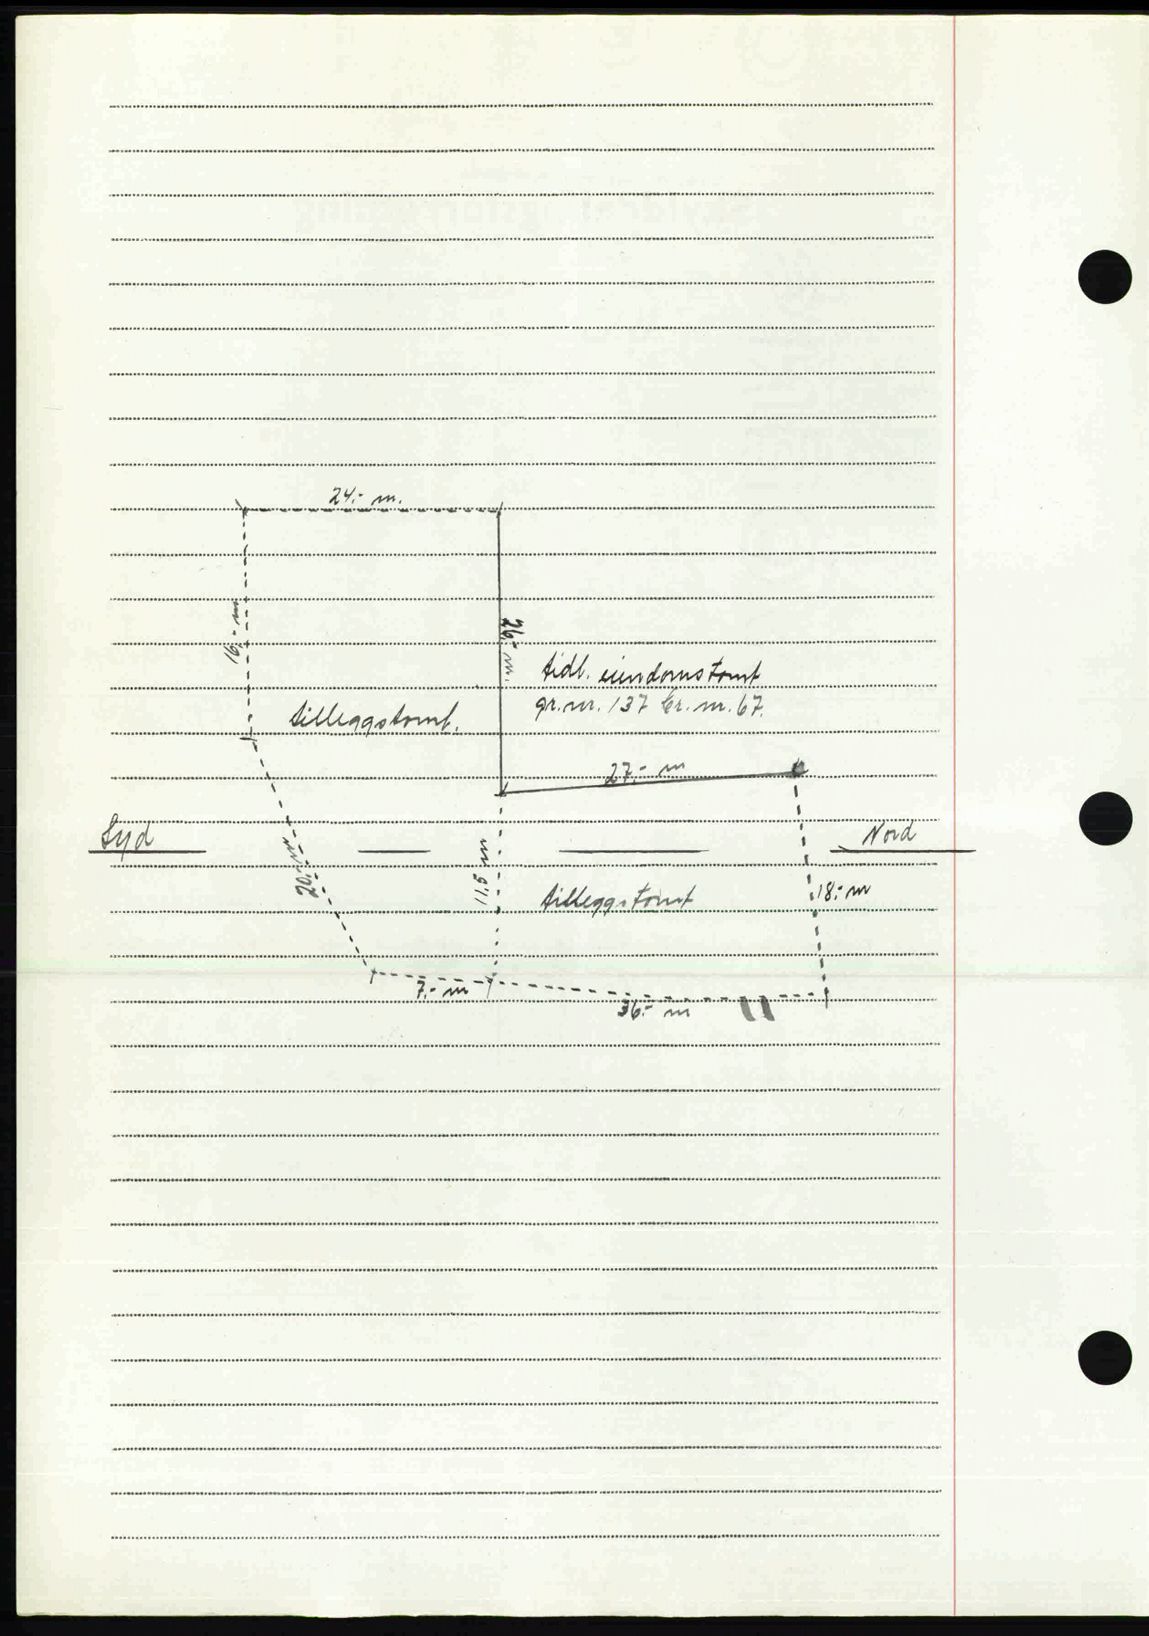 24.- m.
16.- m
26.- m.
tidl. eiendomstomt
gr.nr. 137 br.nr. 67.
tilleggstomt.
27.- m
Syd
Nord
20.- m
11,5 m
tilleggstomt
18.- m
7.- m
36.- m